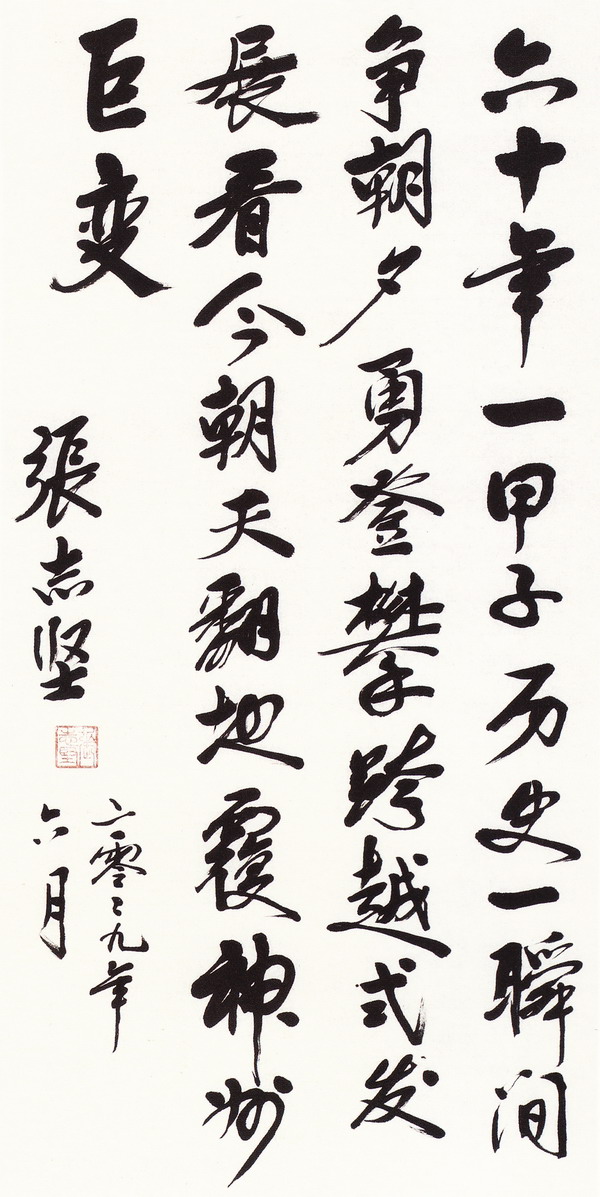 六十年一甲子历史一瞬间
争朝夕勇登攀跨越式发
展看今朝天翻地覆神州
巨变
張志坚
二零零九年
六月